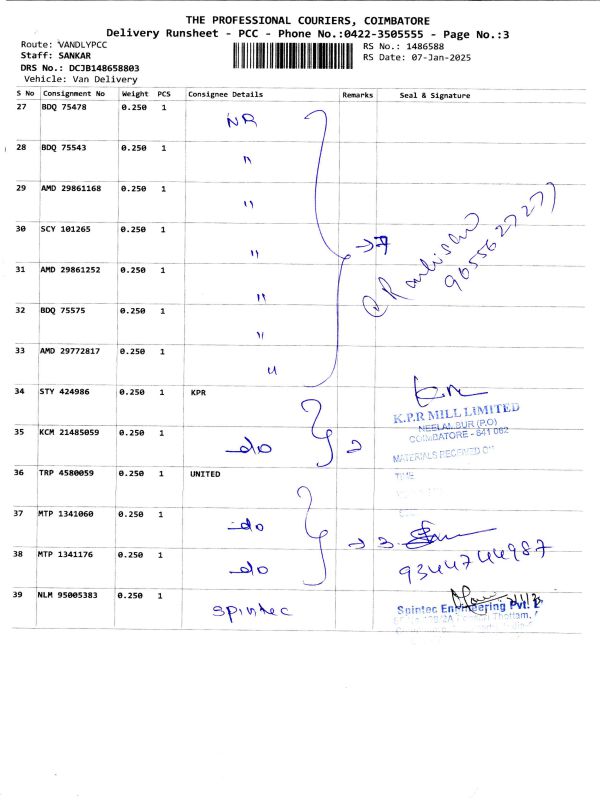 THE PROFESSIONAL COURIERS, COIMBATORE
Delivery Runsheet - PCC - Phone No.:0422-3505555 - Page No.:3
Route: VANDLYPCC
RS No.: 1486588
Staff: SANKAR
RS Date: 07-Jan-2025
DRS No.: DCJB148658803
Vehicle: Van Delivery
S No Consignment No Weight PCS Consignee Details Remarks Seal & Signature
27 BDQ 75478 0.250 1 NR
28 BDQ 75543 0.250 1 "
29 AMD 29861168 0.250 1 "
30 SCY 101265 0.250 1 "
→7
9655627277
31 AMD 29861252 0.250 1 "
32 BDQ 75575 0.250 1 "
33 AMD 29772817 0.250 1 "
34 STY 424986 0.250 1 KPR
K.P.R MILL LIMITED
NEELAMBUR (P.O)
COIMBATORE - 641 062
35 KCM 21485059 0.250 1 do 2
MATERIALS RECEIVED ON
36 TRP 4580059 0.250 1 UNITED
TIME
37 MTP 1341060 0.250 1 do
→ 3
38 MTP 1341176 0.250 1 do
9344744987
39 NLM 95005383 0.250 1 Spintec
Spintec Engineering Pvt.